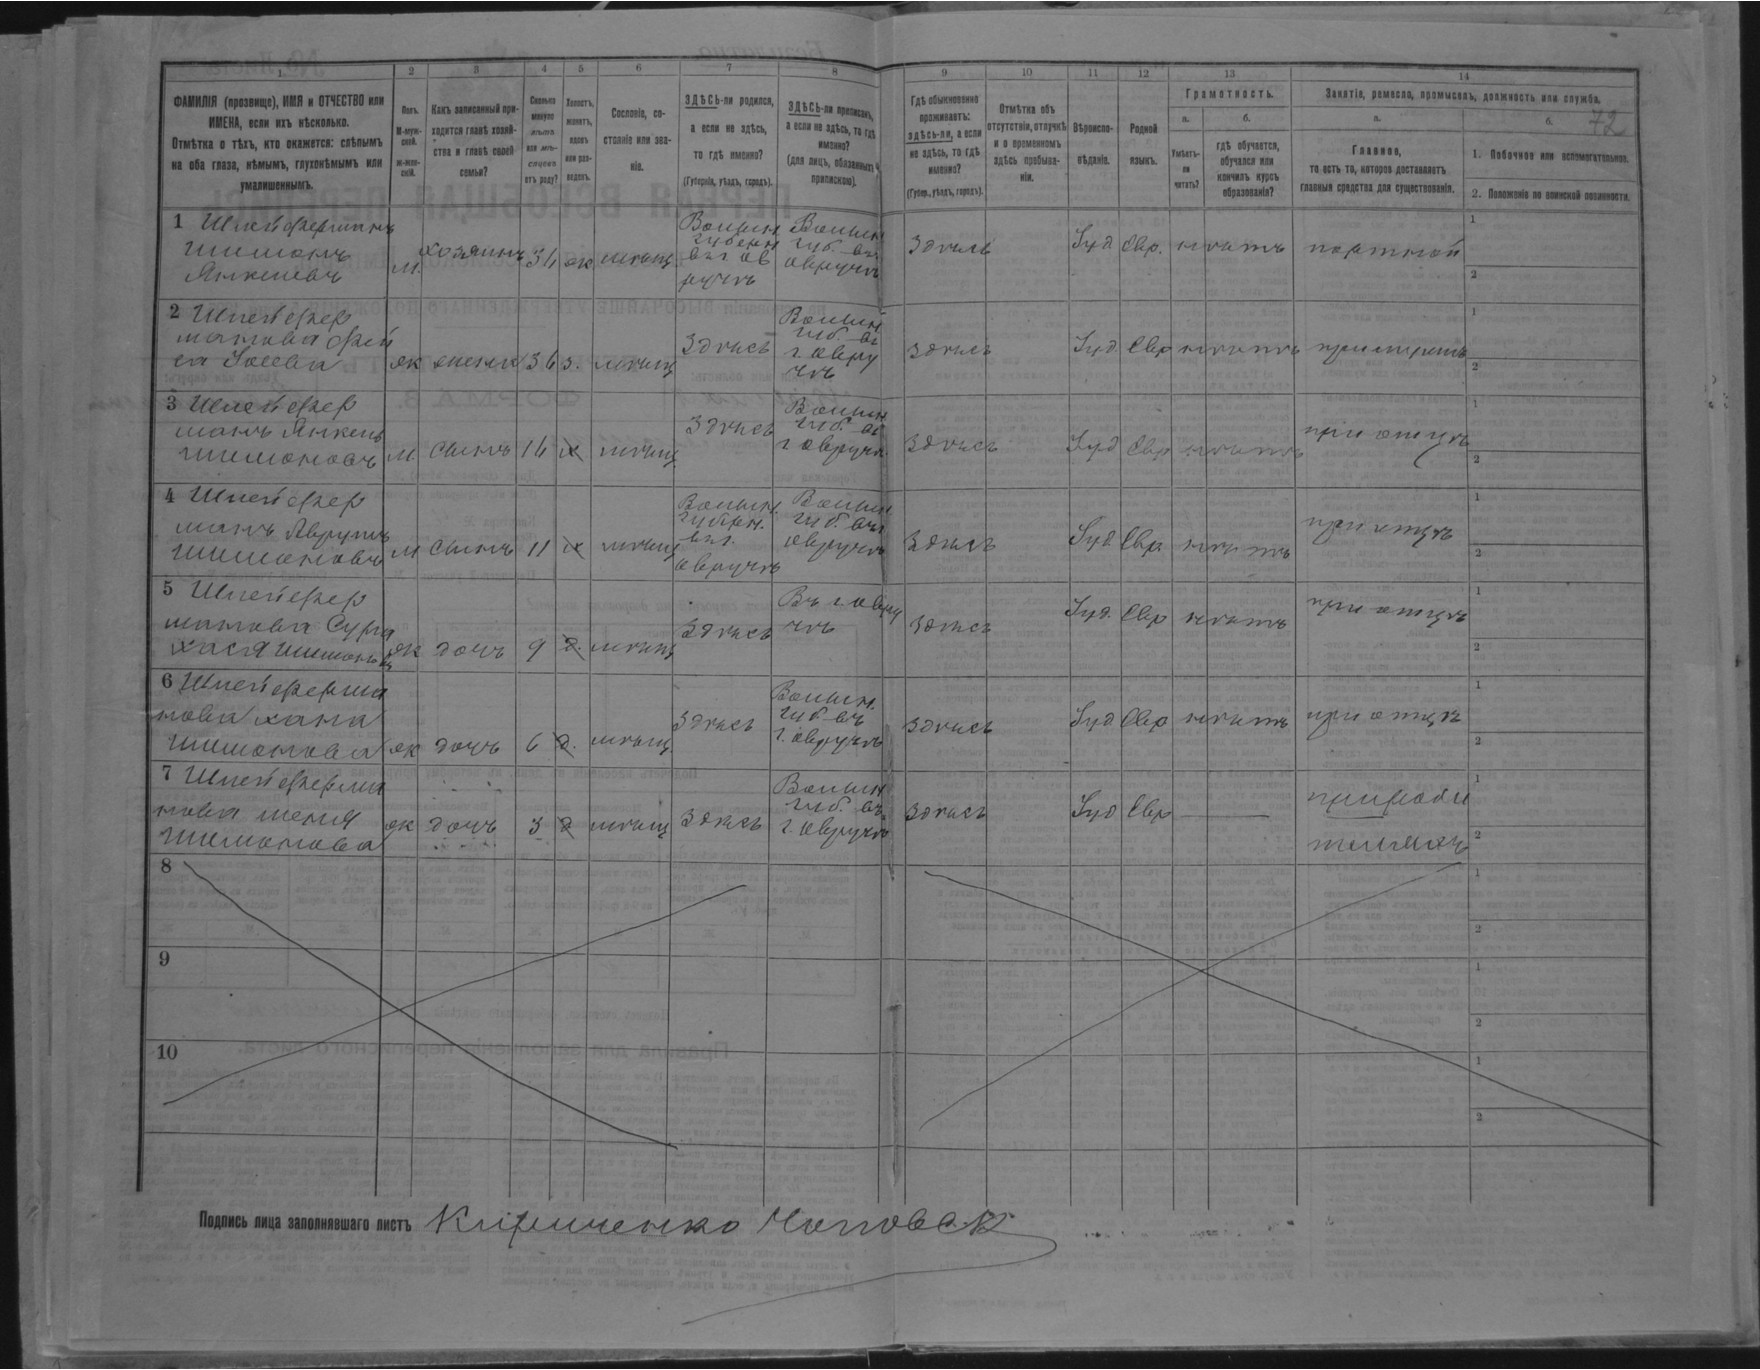 72
1 2 3 4 5 6 7 8 9 10 11 12 13 14
ФАМИЛІЯ (прозвище), ИМЯ и ОТЧЕСТВО или
ИМЕНА, если ихъ нѣсколько.
Отмѣтка о тѣхъ, кто окажется: слѣпымъ
на оба глаза, нѣмымъ, глухонѣмымъ или
умалишеннымъ.
Полъ.
М-муж-
ской.
ж-жен-
скій.
Какъ записанный при-
ходится главѣ хозяй-
ства и главѣ своей
семьи?
Сколько
минуло
лѣтъ
или мѣ-
сяцевъ
отъ роду?
Холостъ,
женатъ,
вдовъ
или раз-
веденъ.
Сословіе, со-
стояніе или зва-
ніе.
ЗДѢСЬ-ли родился,
а если не здѣсь,
то гдѣ именно?
(Губернія, уѣздъ, городъ).
ЗДѢСЬ-ли приписанъ,
а если не здѣсь, то гдѣ
именно?
(для лицъ, обязанныхъ
припискою).
Гдѣ обыкновенно
проживаетъ:
здѣсь-ли, а если
не здѣсь, то гдѣ
именно?
(Губер., уѣздъ, городъ).
Отмѣтка объ
отсутствіи, отлучкѣ
и о временномъ
здѣсь пребыва-
ніи.
Вѣроиспо-
вѣданіе.
Родной
языкъ.
Грамотность.
а.
Умѣетъ-
ли
читать?
б.
гдѣ обучается,
обучался или
кончилъ курсъ
образованія?
Занятіе, ремесло, промыселъ, должность или служба.
а.
Главное,
то есть то, которое доставляетъ
главныя средства для существованія.
б.
1. Побочное или вспомогательное.
2. Положеніе по воинской повинности.
1 Шлейферманъ
Шимонъ
Янкелевъ
м. хозяинъ 34 ж мѣщ
Волын.
губерн
въ г Ов
ручѣ
Волын
губ. въ г.
Овручѣ
здѣсь Іуд. Евр. нѣтъ портной
1
2
2 Шлейфер
манова Фей
га Іосева
ж жена 36 з. мѣщ здѣсь
Волын
губ. въ
г. Овру
чѣ
здѣсь Іуд. Евр нѣтъ при мужѣ
1
2
3 Шлейфер
манъ Янкель
Шимоновъ
м. сынъ 14 х мѣщ здѣсь
Волын
губ. въ
г Овручѣ
здѣсь Іуд Евр нѣтъ при отцѣ
1
2
4 Шлейфер
манъ Аврумъ
Шимоновъ
м сынъ 11 х мѣщ
Волын.
губерн.
въ г.
Овручѣ
Волын
губ. въ г
Овручѣ
здѣсь Іуд Евр. нѣтъ при отцѣ
1
2
5 Шлейфер
манова Сура
Хася Шимонова
ж дочь 9 д. мѣщ здѣсь
Въ г. Овру
чѣ
здѣсь Іуд. Евр нѣтъ при отцѣ
1
2
6 Шлейферма
нова Хана
Шимонова
ж дочь 6 д. мѣщ здѣсь
Волын.
губ въ
г. Овручѣ
здѣсь Іуд Евр нѣтъ при отцѣ
1
2
7 Шлейферма
нова Шейня
Шимонова
ж дочь 3 д мѣщ здѣсь
Волын
губ. въ
г. Овручѣ
здѣсь Іуд Евр при роди
теляхъ
1
2
8
1
2
9
1
2
10
1
2
Подпись лица заполнявшаго листъ Кириченко